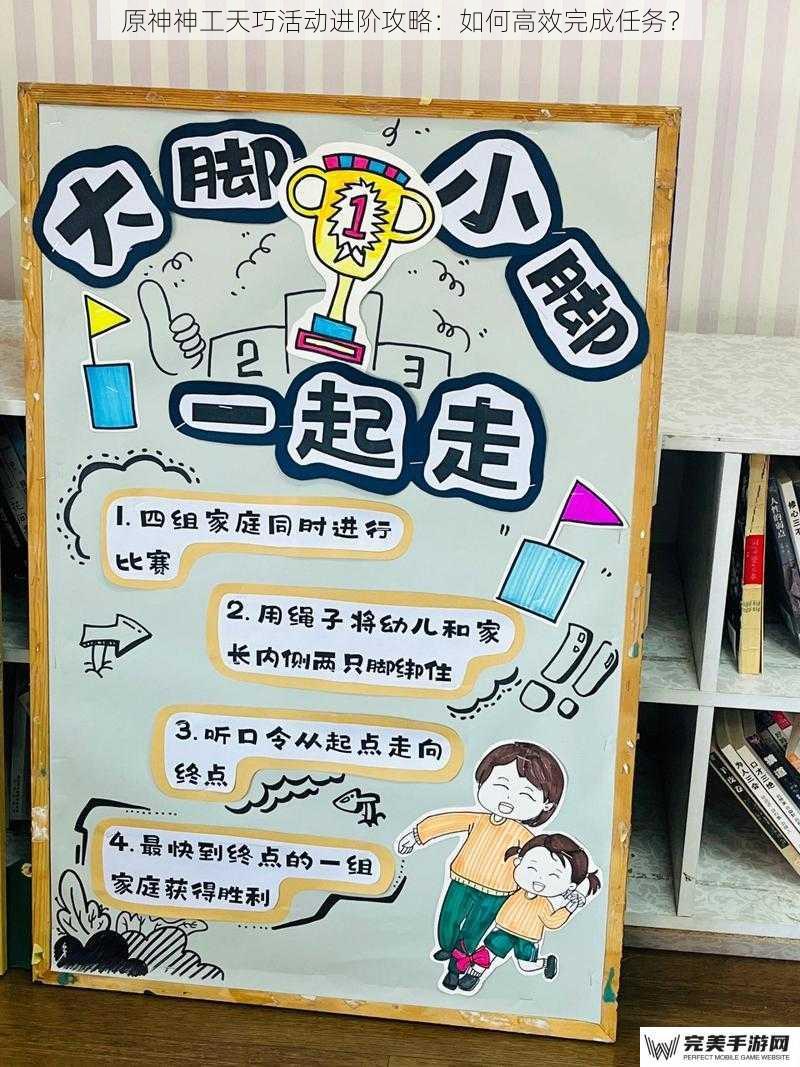 原神神工天巧活动进阶攻略：如何高效完成任务？
大脚小脚
1
2
3
一起走
1.四组家庭同时进行
比赛
2.用绳子将幼儿和家
长内侧两只脚绑住
3.听口令从起点走向
终点
4.最快到终点的一组
家庭获得胜利
人性的弱点
完美手游网
PERFECT MOBILE GAME WEBSITE